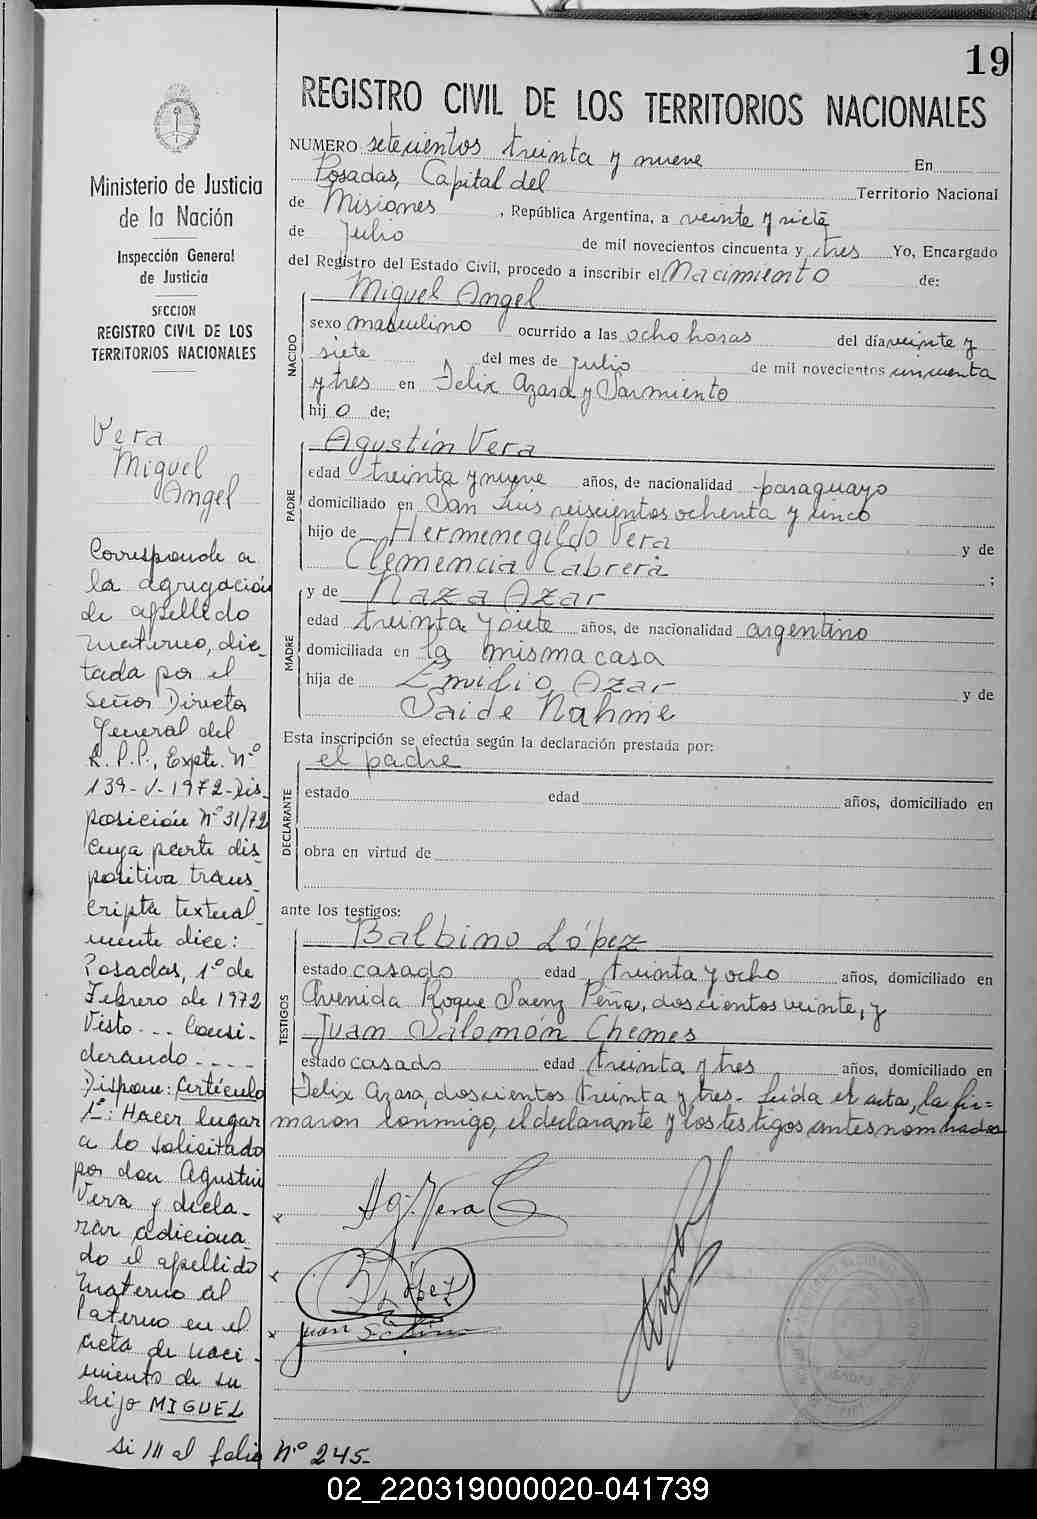 19
REGISTRO CIVIL DE LOS TERRITORIOS NACIONALES
NUMERO setecientos treinta y nueve En
Posadas, Capital del Territorio Nacional
de Misiones, República Argentina, a veinte y siete
de Julio de mil novecientos cincuenta y tres Yo, Encargado
del Registro del Estado Civil, procedo a inscribir el Nacimiento de:
NACIDO
Miguel Angel
sexo masculino ocurrido a las ocho horas del día veinte y
siete del mes de julio de mil novecientos cincuenta
y tres en Felix Azara y Sarmiento
hijo de;
PADRE
Agustín Vera
edad treinta y nueve años, de nacionalidad paraguayo
domiciliado en San Luis seiscientos ochenta y cinco
hijo de Hermenegildo Vera y de
Clemencia Cabrera ;
MADRE
y de Naza Azar
edad treinta y siete años, de nacionalidad argentino
domiciliada en la misma casa
hija de Emilio Azar y de
Saide Nahme
Esta inscripción se efectúa según la declaración prestada por:
DECLARANTE
el padre
estado edad años, domiciliado en
obra en virtud de
ante los testigos:
TESTIGOS
Balbino López
estado casado edad treinta y ocho años, domiciliado en
Avenida Roque Saenz Peña, doscientos veinte, y
Juan Salomón Chemes
estado casado edad treinta y tres años, domiciliado en
Felix Azara, doscientos treinta y tres- Leída el acta, la fir=
maron conmigo, el declarante y los testigos antes nombrados
Ag. Vera C
B López
Juan
Ministerio de Justicia
de la Nación
Inspección General
de Justicia
SECCION
REGISTRO CIVIL DE LOS
TERRITORIOS NACIONALES
Vera
Miguel
Angel
Corresponde a
la agregación
de apellido
materno, dic-
tada por el
Señor Director
General del
R.P.P., Expte. Nº
139-V-1972-Dis-
posición Nº 31/72
cuya parte dis-
positiva trans-
cripta textual-
mente dice:
Posadas, 1º de
Febrero de 1972
Visto... Consi-
derando....
Dispone: Artículo
1º: Hacer lugar
a lo solicitado
por don Agustín
Vera y decla-
rar adiciona-
do el apellido
materno al
Paterno en el
acta de naci-
miento de su
hijo MIGUEL
al folio Nº 245-
02_220319000020-041739